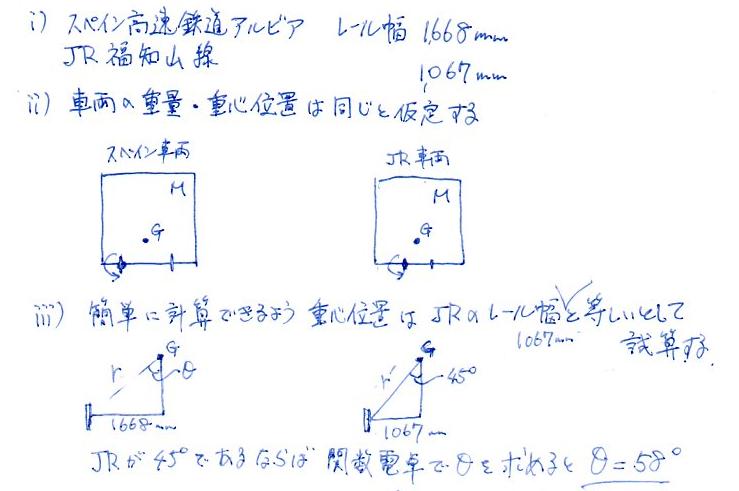 i) スペイン高速鉄道アルビア レール幅 1,668mm
JR福知山線 1,067mm
ii) 車両の重量・重心位置は同じと仮定する
スペイン車両 JR車両
M M
G G
iii) 簡単に計算できるよう重心位置はJRのレール幅と等しいとして
1067mm 試算する。
G G
r θ r 45°
1668mm 1067mm
JRが45°であるならば 関数電卓でθを求めると θ=58°